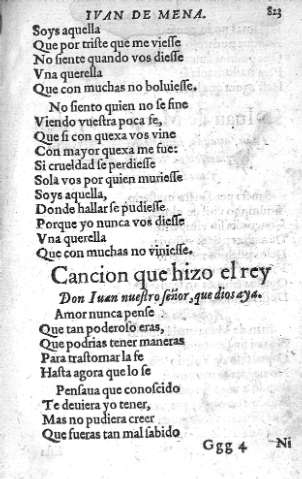 IVAN DE MENA. 823
Soys aquella
Que por triſte que me vieſſe
No ſiente quando vos dieſſe
Vna querella
Que con muchas no boluieſſe.
No ſiento quien no ſe fine
Viendo vueſtra poca fe,
Que ſi con quexa vos vine
Con mayor quexa me fue:
Si crueldad ſe perdieſſe
Sola vos por quien murieſſe
Soys aquella,
Donde hallar ſe pudieſſe
Porque yo nunca vos dieſſe
Vna querella
Que con muchas no vinieſſe.
Cancion que hizo el rey
Don Iuan nueſtro ſeñor, que dios aya.
Amor nunca penſe
Que tan poderoſo eras,
Que podrias tener maneras
Para traſtornar la fe
Haſta agora que lo ſe
Penſaua que conoſcido
Te deuiera yo tener,
Mas no pudiera creer
Que fueras tan mal ſabido
Ggg 4 Ni